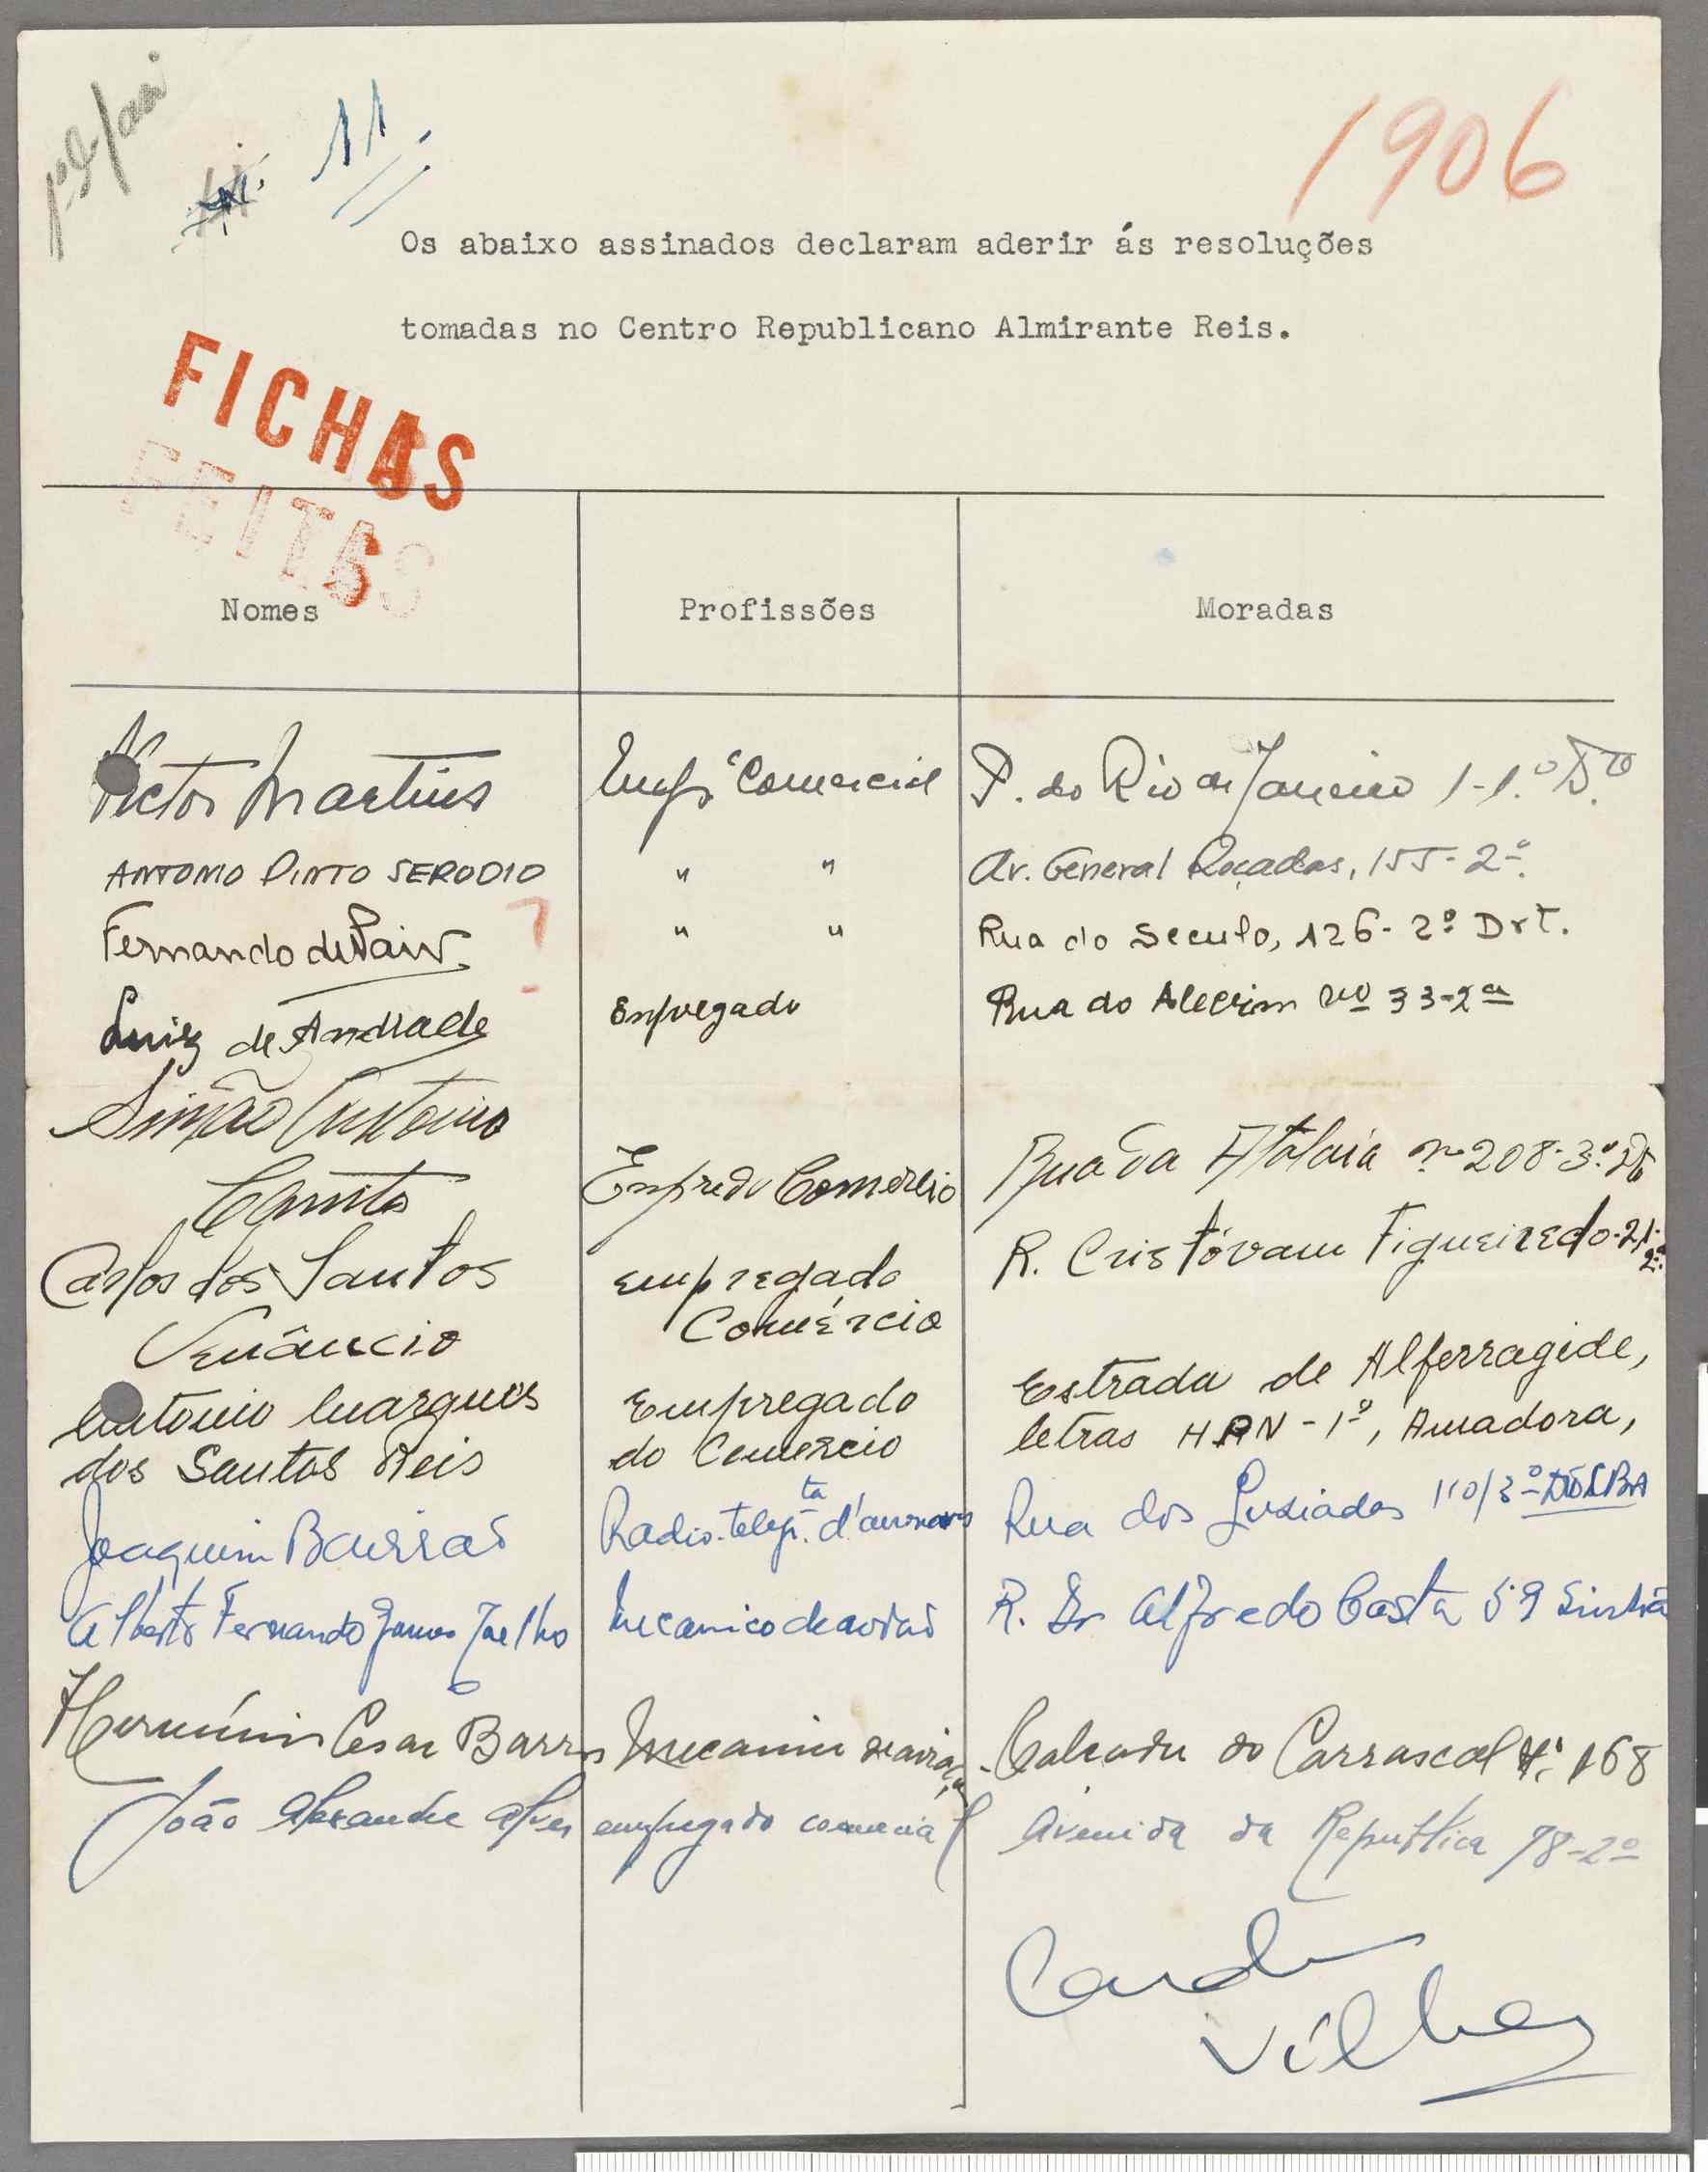 11.
1906
Os abaixo assinados declaram aderir ás resoluções
tomadas no Centro Republicano Almirante Reis.
FICHAS
FEITAS
Nomes Profissões Moradas
Victor Martins Empº Comercial P. do Rio de Janeiro 1-1.º D.to
ANTONIO PINTO SERODIO " " Av. General Roçadas, 155-2º.
Fernando de Paiva " " Rua do Seculo, 126-2º Drt.
?
Luiz de Andrade Empregado Rua do Alecrim nº 33-2º
Simão Custodio
Empregado Comércio Rua da Atalaia nº 208-3º
Carlos dos Santos empregado R. Cristóvam Figueiredo-21-2º
Venâncio Comércio
Antonio Marques Empregado Estrada de Alferragide,
dos Santos Reis do Comercio letras HAN-1º, Amadora,
Joaquim Bairrão Radio-telegta d'aeronaves Rua dos Lusiadas 110/3º LISBA
Alberto Fernando Mecanico de avião R. Dr Alfredo Costa 59 Sintra
Hermínio Cesar Barros Mecanico Calçada do Carrascal Nº 168
João Alexandre Alves empregado comercial Avenida da Republica 78-2º